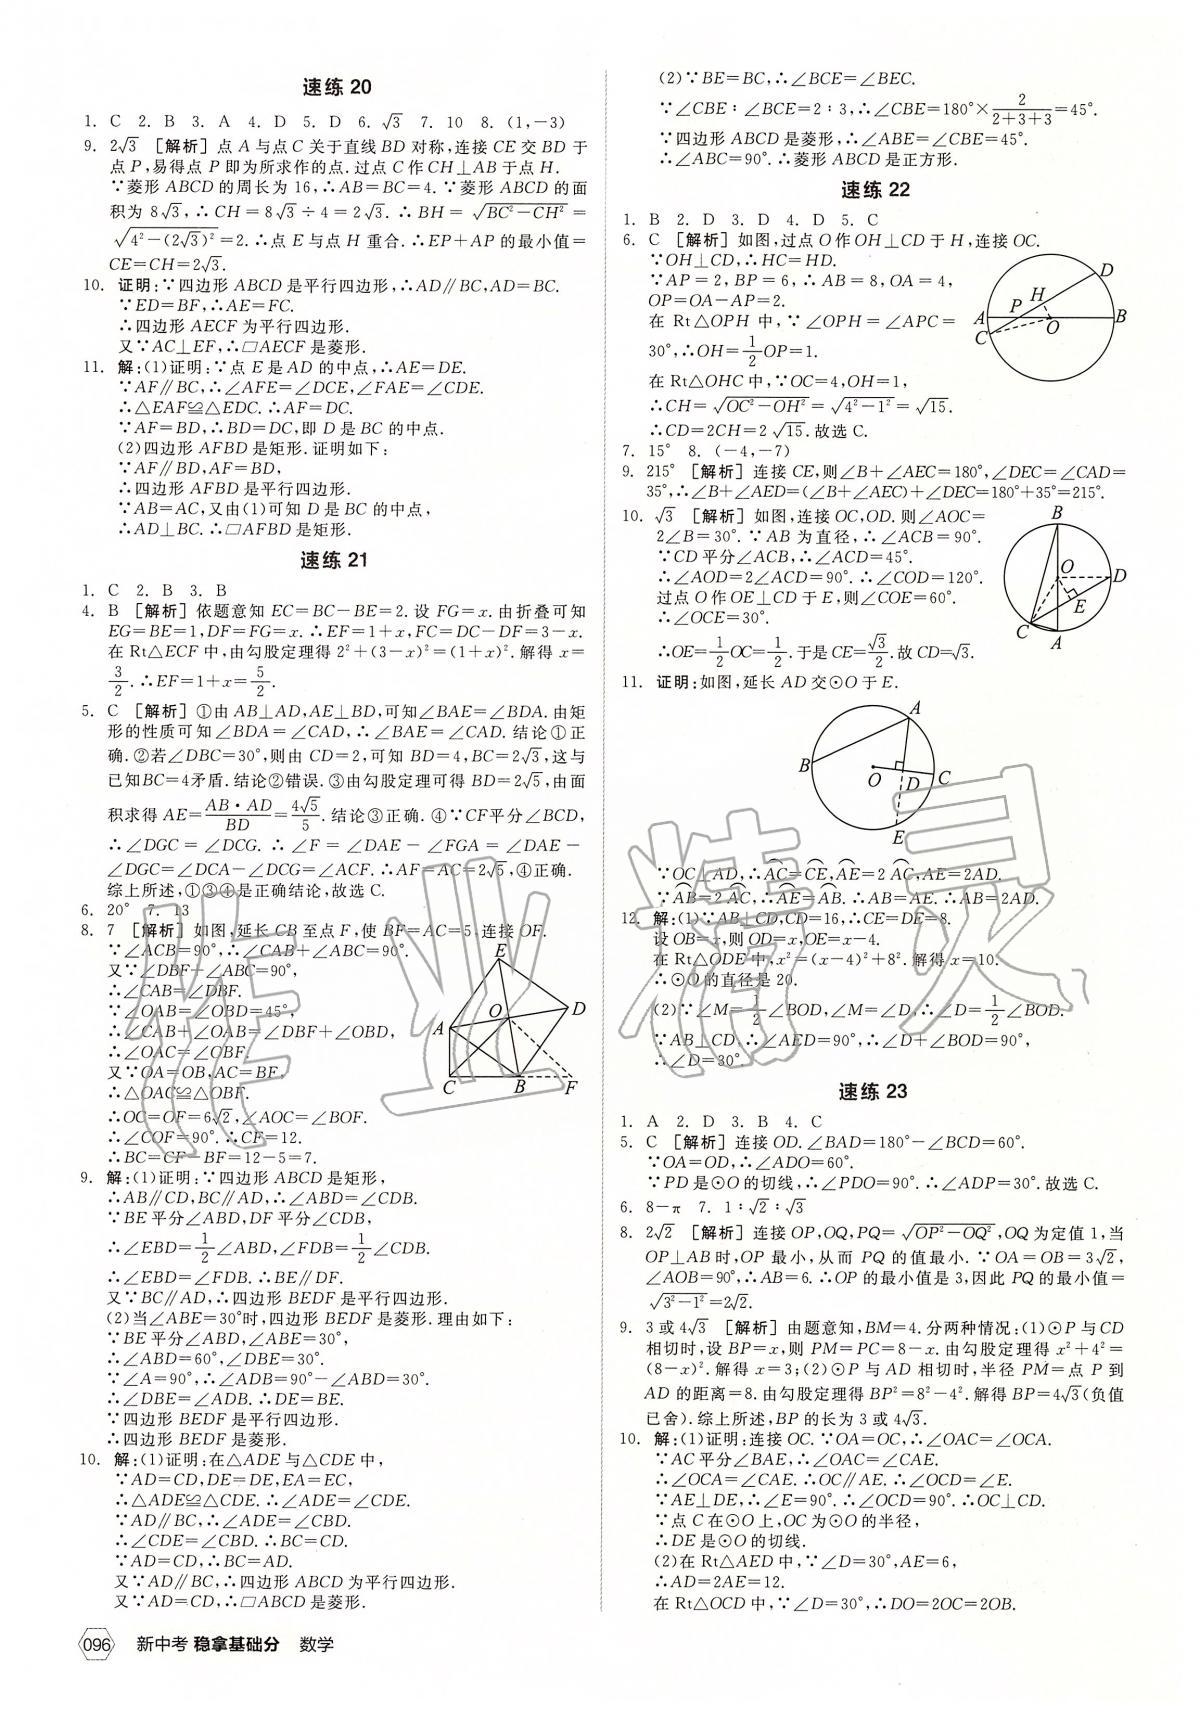 速练 20
1. C 2. B 3. A 4. D 5. D 6. √3 7. 10 8. (1,-3)
9. 2√3 [解析] 点 A 与点 C 关于直线 BD 对称,连接 CE 交 BD 于
点 P,易得点 P 即为所求作的点.过点 C 作 CH⊥AB 于点 H.
∵菱形 ABCD 的周长为 16,∴AB=BC=4.∵菱形 ABCD 的面
积为 8√3,∴CH=8√3÷4=2√3.∴BH=√(BC²-CH²)=
√(4²-(2√3)²)=2.∴点 E 与点 H 重合.∴EP+AP 的最小值=
CE=CH=2√3.
10. 证明:∵四边形 ABCD 是平行四边形,∴AD∥BC,AD=BC.
∵ED=BF,∴AE=FC.
∴四边形 AECF 为平行四边形.
又∵AC⊥EF,∴□AECF 是菱形.
11. 解:(1)证明:∵点 E 是 AD 的中点,∴AE=DE.
∵AF∥BC,∴∠AFE=∠DCE,∠FAE=∠CDE.
∴△EAF≌△EDC.∴AF=DC.
∵AF=BD,∴BD=DC,即 D 是 BC 的中点.
(2)四边形 AFBD 是矩形.证明如下:
∵AF∥BD,AF=BD,
∴四边形 AFBD 是平行四边形.
∵AB=AC,又由(1)可知 D 是 BC 的中点,
∴AD⊥BC.∴□AFBD 是矩形.
速练 21
1. C 2. B 3. B
4. B [解析] 依题意知 EC=BC-BE=2.设 FG=x.由折叠可知
EG=BE=1,DF=FG=x.∴EF=1+x,FC=DC-DF=3-x.
在 Rt△ECF 中,由勾股定理得 2²+(3-x)²=(1+x)².解得 x=
3/2.∴EF=1+x=5/2.
5. C [解析] ①由 AB⊥AD,AE⊥BD,可知∠BAE=∠BDA.由矩
形的性质可知∠BDA=∠CAD,∴∠BAE=∠CAD.结论①正
确.②若∠DBC=30°,则由 CD=2,可知 BD=4,BC=2√3,这与
已知BC=4矛盾.结论②错误.③由勾股定理可得 BD=2√5,由面
积求得 AE=AB·AD/BD=4√5/5.结论③正确.④∵CF平分∠BCD,
∴∠DGC=∠DCG.∴∠F=∠DAE-∠FGA=∠DAE-
∠DGC=∠DCA-∠DCG=∠ACF.∴AF=AC=2√5,④正确.
综上所述,①③④是正确结论,故选 C.
6. 20° 7. 13
8. 7 [解析] 如图,延长 CB 至点 F,使 BF=AC=5,连接 OF.
∵∠ACB=90°,∴∠CAB+∠ABC=90°.
又∵∠DBF+∠ABC=90°,
∴∠CAB=∠DBF.
∵∠OAB=∠OBD=45°,
∴∠CAB+∠OAB=∠DBF+∠OBD,
∴∠OAC=∠OBF.
又∵OA=OB,AC=BF,
∴△OAC≌△OBF.
∴OC=OF=6√2,∠AOC=∠BOF.
∴∠COF=90°.∴CF=12.
∴BC=CF-BF=12-5=7.
E
O
D
A
C
B
F
9. 解:(1)证明:∵四边形 ABCD 是矩形,
∴AB∥CD,BC∥AD,∴∠ABD=∠CDB.
∵BE 平分∠ABD,DF 平分∠CDB,
∴∠EBD=1/2∠ABD,∠FDB=1/2∠CDB.
∴∠EBD=∠FDB.∴BE∥DF.
又∵BC∥AD,∴四边形 BEDF 是平行四边形.
(2)当∠ABE=30°时,四边形 BEDF 是菱形.理由如下:
∵BE 平分∠ABD,∠ABE=30°,
∴∠ABD=60°,∠DBE=30°.
∵∠A=90°,∴∠ADB=90°-∠ABD=30°.
∴∠DBE=∠ADB.∴DE=BE.
∵四边形 BEDF 是平行四边形,
∴四边形 BEDF 是菱形.
10. 解:(1)证明:在△ADE 与△CDE 中,
∵AD=CD,DE=DE,EA=EC,
∴△ADE≌△CDE.∴∠ADE=∠CDE.
∵AD∥BC,∴∠ADE=∠CBD.
∴∠CDE=∠CBD.∴BC=CD.
∵AD=CD,∴BC=AD.
又∵AD∥BC,∴四边形 ABCD 为平行四边形.
又∵AD=CD,∴□ABCD 是菱形.
(2)∵BE=BC,∴∠BCE=∠BEC.
∵∠CBE∶∠BCE=2∶3,∴∠CBE=180°×2/(2+3+3)=45°.
∵四边形 ABCD 是菱形,∴∠ABE=∠CBE=45°.
∴∠ABC=90°.∴菱形 ABCD 是正方形.
速练 22
1. B 2. D 3. D 4. D 5. C
6. C [解析] 如图,过点 O 作 OH⊥CD 于 H,连接 OC.
∵OH⊥CD,∴HC=HD.
∵AP=2,BP=6,∴AB=8,OA=4,
OP=OA-AP=2.
在 Rt△OPH 中,∵∠OPH=∠APC=
30°,∴OH=1/2OP=1.
在 Rt△OHC 中,∵OC=4,OH=1,
∴CH=√(OC²-OH²)=√(4²-1²)=√15.
∴CD=2CH=2√15.故选 C.
D
H
P
A
O
B
C
7. 15° 8. (-4,-7)
9. 215° [解析] 连接 CE,则∠B+∠AEC=180°,∠DEC=∠CAD=
35°,∴∠B+∠AED=(∠B+∠AEC)+∠DEC=180°+35°=215°.
10. √3 [解析] 如图,连接 OC,OD.则∠AOC=
2∠B=30°.∵AB 为直径,∴∠ACB=90°.
∵CD 平分∠ACB,∴∠ACD=45°.
∴∠AOD=2∠ACD=90°.∴∠COD=120°.
过点 O 作 OE⊥CD 于 E,则∠COE=60°.
∴∠OCE=30°.
∴OE=1/2OC=1/2.于是 CE=√3/2.故 CD=√3.
B
O
D
E
C
A
11. 证明:如图,延长 AD 交⊙O 于 E.
A
B
O
D
C
E
∵OC⊥AD,∴A͡C=C͡E,A͡E=2A͡C,AE=2AD.
∵A͡B=2A͡C,∴A͡E=A͡B.∴AB=AE.∴AB=2AD.
12. 解:(1)∵AB⊥CD,CD=16,∴CE=DE=8.
设 OB=x,则 OD=x,OE=x-4.
在 Rt△ODE 中,x²=(x-4)²+8².解得 x=10.
∴⊙O 的直径是 20.
(2)∵∠M=1/2∠BOD,∠M=∠D,∴∠D=1/2∠BOD.
∵AB⊥CD,∴∠AED=90°,∴∠D+∠BOD=90°,
∴∠D=30°.
速练 23
1. A 2. D 3. B 4. C
5. C [解析] 连接 OD.∠BAD=180°-∠BCD=60°.
∵OA=OD,∴∠ADO=60°.
∵PD 是⊙O 的切线,∴∠PDO=90°.∴∠ADP=30°.故选 C.
6. 8-π 7. 1∶√2∶√3
8. 2√2 [解析] 连接 OP,OQ,PQ=√(OP²-OQ²),OQ 为定值 1,当
OP⊥AB 时,OP 最小,从而 PQ 的值最小.∵OA=OB=3√2,
∠AOB=90°,∴AB=6.∴OP 的最小值是 3,因此 PQ 的最小值=
√(3²-1²)=2√2.
9. 3 或 4√3 [解析] 由题意知,BM=4.分两种情况:(1)⊙P 与 CD
相切时,设 BP=x,则 PM=PC=8-x.由勾股定理得 x²+4²=
(8-x)².解得 x=3;(2)⊙P 与 AD 相切时,半径 PM=点 P 到
AD 的距离=8.由勾股定理得 BP²=8²-4².解得 BP=4√3(负值
已舍).综上所述,BP 的长为 3 或 4√3.
10. 解:(1)证明:连接 OC.∵OA=OC,∴∠OAC=∠OCA.
∵AC 平分∠BAE,∴∠OAC=∠CAE.
∴∠OCA=∠CAE.∴OC∥AE.∴∠OCD=∠E.
∵AE⊥DE,∴∠E=90°.∴∠OCD=90°.∴OC⊥CD.
∵点 C 在⊙O 上,OC 为⊙O 的半径,
∴DE 是⊙O 的切线.
(2)在 Rt△AED 中,∵∠D=30°,AE=6,
∴AD=2AE=12.
在 Rt△OCD 中,∵∠D=30°,∴DO=2OC=2OB.
096 新中考 稳拿基础分 数学
作业精灵